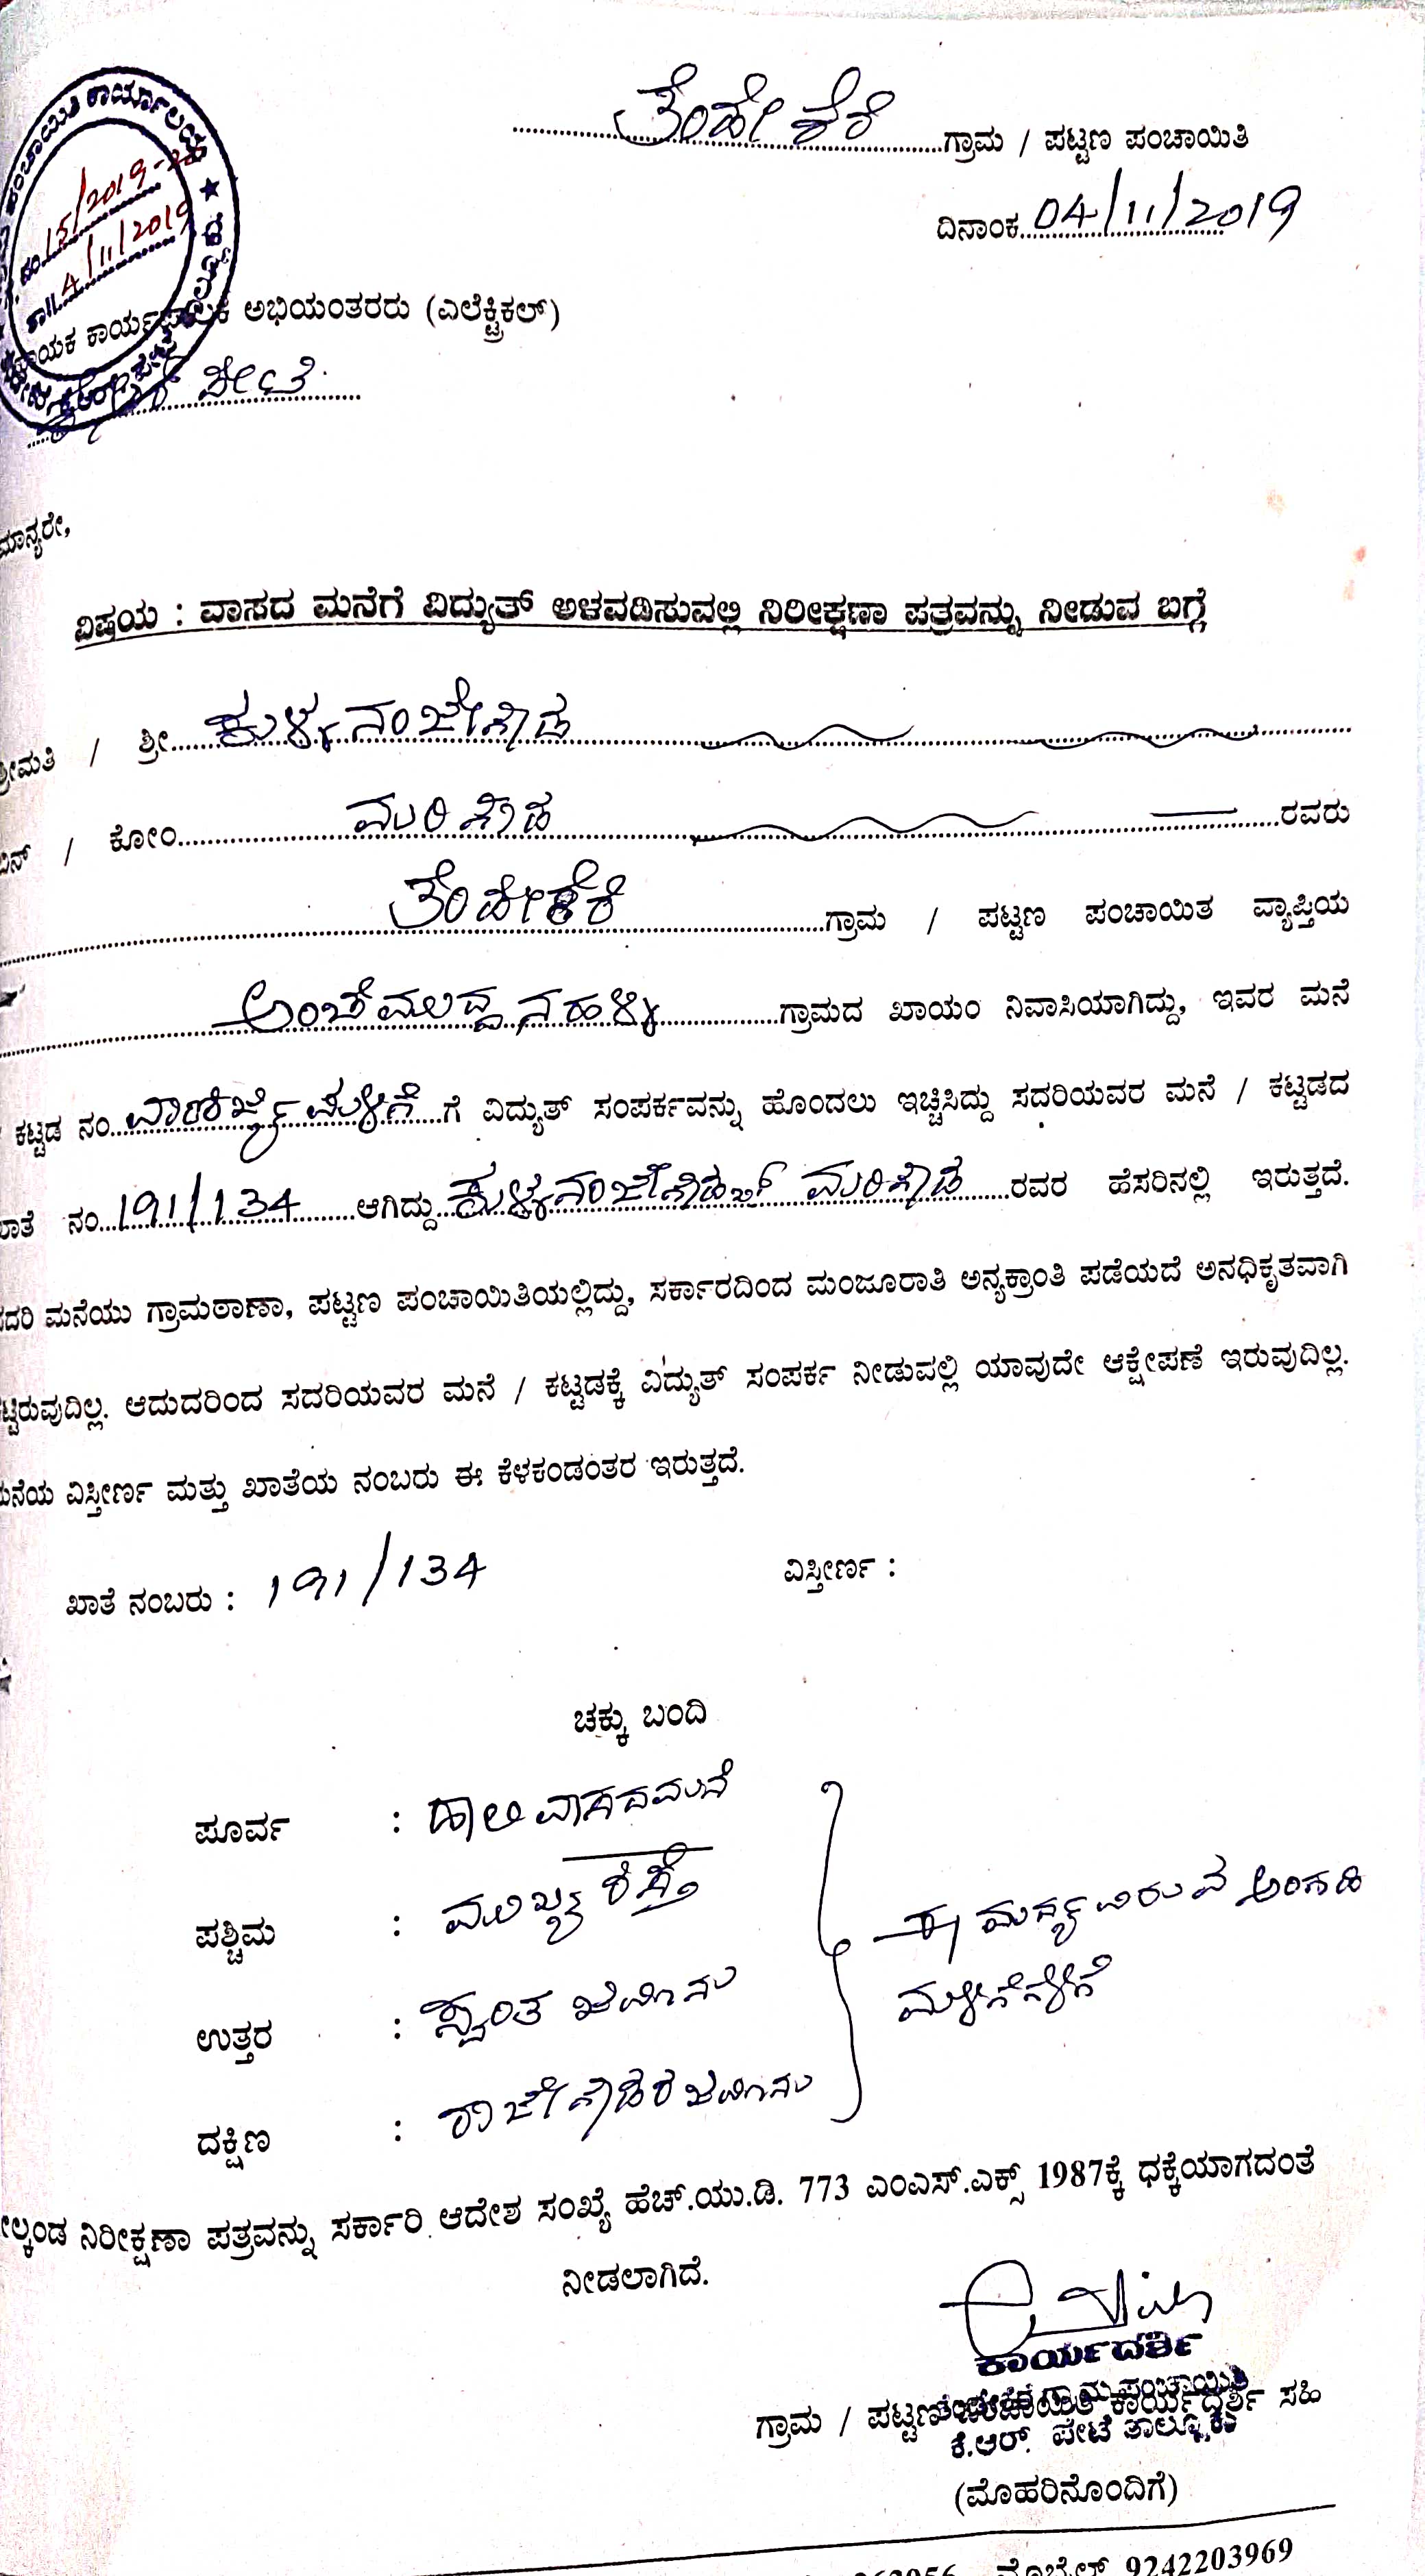 ತೆಂಡೇಕೆರೆ ಗ್ರಾಮ / ಪಟ್ಟಣ ಪಂಚಾಯಿತಿ
ದಿನಾಂಕ 04/11/2019
ಪಂಚಾಯಿತಿ ಕಾರ್ಯಾಲಯ ★
ನಂ 15/2019-20
ತಾ॥ 4/11/2019
ಕಾರ್ಯಪಾಲಕ ಅಭಿಯಂತರರು (ಎಲೆಕ್ಟ್ರಿಕಲ್)
ಪೇಟೆ
ಮಾನ್ಯರೇ,
ವಿಷಯ : ವಾಸದ ಮನೆಗೆ ವಿದ್ಯುತ್ ಅಳವಡಿಸುವಲ್ಲಿ ನಿರೀಕ್ಷಣಾ ಪತ್ರವನ್ನು ನೀಡುವ ಬಗ್ಗೆ
ಶ್ರೀಮತಿ / ಶ್ರೀ ಕುಳ್ಳನಂಜೇಗೌಡ
ಬಿನ್ / ಕೋಂ ಮರಿಗೌಡ ರವರು
ತೆಂಡೇಕೆರೆ ಗ್ರಾಮ / ಪಟ್ಟಣ ಪಂಚಾಯಿತ ವ್ಯಾಪ್ತಿಯ
ಗ್ರಾಮದ ಖಾಯಂ ನಿವಾಸಿಯಾಗಿದ್ದು, ಇವರ ಮನೆ
/ ಕಟ್ಟಡ ನಂ ವಾಣಿಜ್ಯ ಮಳಿಗೆ ಗೆ ವಿದ್ಯುತ್ ಸಂಪರ್ಕವನ್ನು ಹೊಂದಲು ಇಚ್ಚಿಸಿದ್ದು ಸದರಿಯವರ ಮನೆ / ಕಟ್ಟಡದ
ಖಾತೆ ನಂ 191/134 ಆಗಿದ್ದು ಕುಳ್ಳನಂಜೇಗೌಡ ಬಿನ್ ಮರಿಗೌಡ ರವರ ಹೆಸರಿನಲ್ಲಿ ಇರುತ್ತದೆ.
ಸದರಿ ಮನೆಯು ಗ್ರಾಮಠಾಣಾ, ಪಟ್ಟಣ ಪಂಚಾಯಿತಿಯಲ್ಲಿದ್ದು, ಸರ್ಕಾರದಿಂದ ಮಂಜೂರಾತಿ ಅನ್ಯಕ್ರಾಂತಿ ಪಡೆಯದೆ ಅನಧಿಕೃತವಾಗಿ
ಕಟ್ಟಿರುವುದಿಲ್ಲ. ಆದುದರಿಂದ ಸದರಿಯವರ ಮನೆ / ಕಟ್ಟಡಕ್ಕೆ ವಿದ್ಯುತ್ ಸಂಪರ್ಕ ನೀಡುವಲ್ಲಿ ಯಾವುದೇ ಆಕ್ಷೇಪಣೆ ಇರುವುದಿಲ್ಲ.
ಮನೆಯ ವಿಸ್ತೀರ್ಣ ಮತ್ತು ಖಾತೆಯ ನಂಬರು ಈ ಕೆಳಕಂಡಂತರ ಇರುತ್ತದೆ.
ಖಾತೆ ನಂಬರು : 191/134 ವಿಸ್ತೀರ್ಣ :
ಚಕ್ಕು ಬಂದಿ
ಪೂರ್ವ : ಹಾಲಿ ವಾಸದಮನೆ
ಪಶ್ಚಿಮ : ಮುಖ್ಯ ರಸ್ತೆ
ಉತ್ತರ : ಸ್ವಂತ ಜಮೀನು
ದಕ್ಷಿಣ : ರಾಜೇಗೌಡರ ಜಮೀನು
ಈ ಮಧ್ಯವಿರುವ ಅಂಗಡಿ
ಮಳಿಗೆಗಳಿಗೆ
ಮೇಲ್ಕಂಡ ನಿರೀಕ್ಷಣಾ ಪತ್ರವನ್ನು ಸರ್ಕಾರಿ ಆದೇಶ ಸಂಖ್ಯೆ ಹೆಚ್.ಯು.ಡಿ. 773 ಎಂಎಸ್.ಎಕ್ಸ್ 1987ಕ್ಕೆ ಧಕ್ಕೆಯಾಗದಂತೆ
ನೀಡಲಾಗಿದೆ.
ಕಾರ್ಯದರ್ಶಿ
ತೆಂಡೇಕೆರೆ ಗ್ರಾಮ ಪಂಚಾಯಿತಿ
ಗ್ರಾಮ / ಪಟ್ಟಣ ಪಂಚಾಯಿತಿ ಕಾರ್ಯದರ್ಶಿ ಸಹಿ
ಕೆ.ಆರ್. ಪೇಟೆ ತಾಲ್ಲೂಕು
(ಮೊಹರಿನೊಂದಿಗೆ)
ಮೊಬೈಲ್ 9242203969